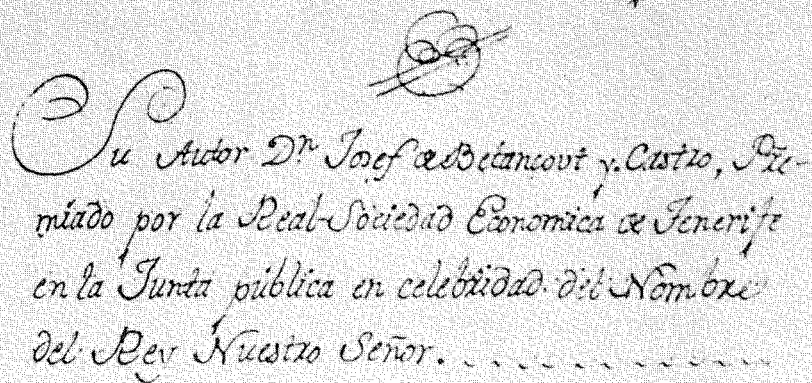 Su Autor Dn Josef de Betancourt y Castro, Pre-
miado por la Real Sociedad Economica de Tenerife
en la Junta pública en celebridad del Nombre
del Rey Nuestro Señor.